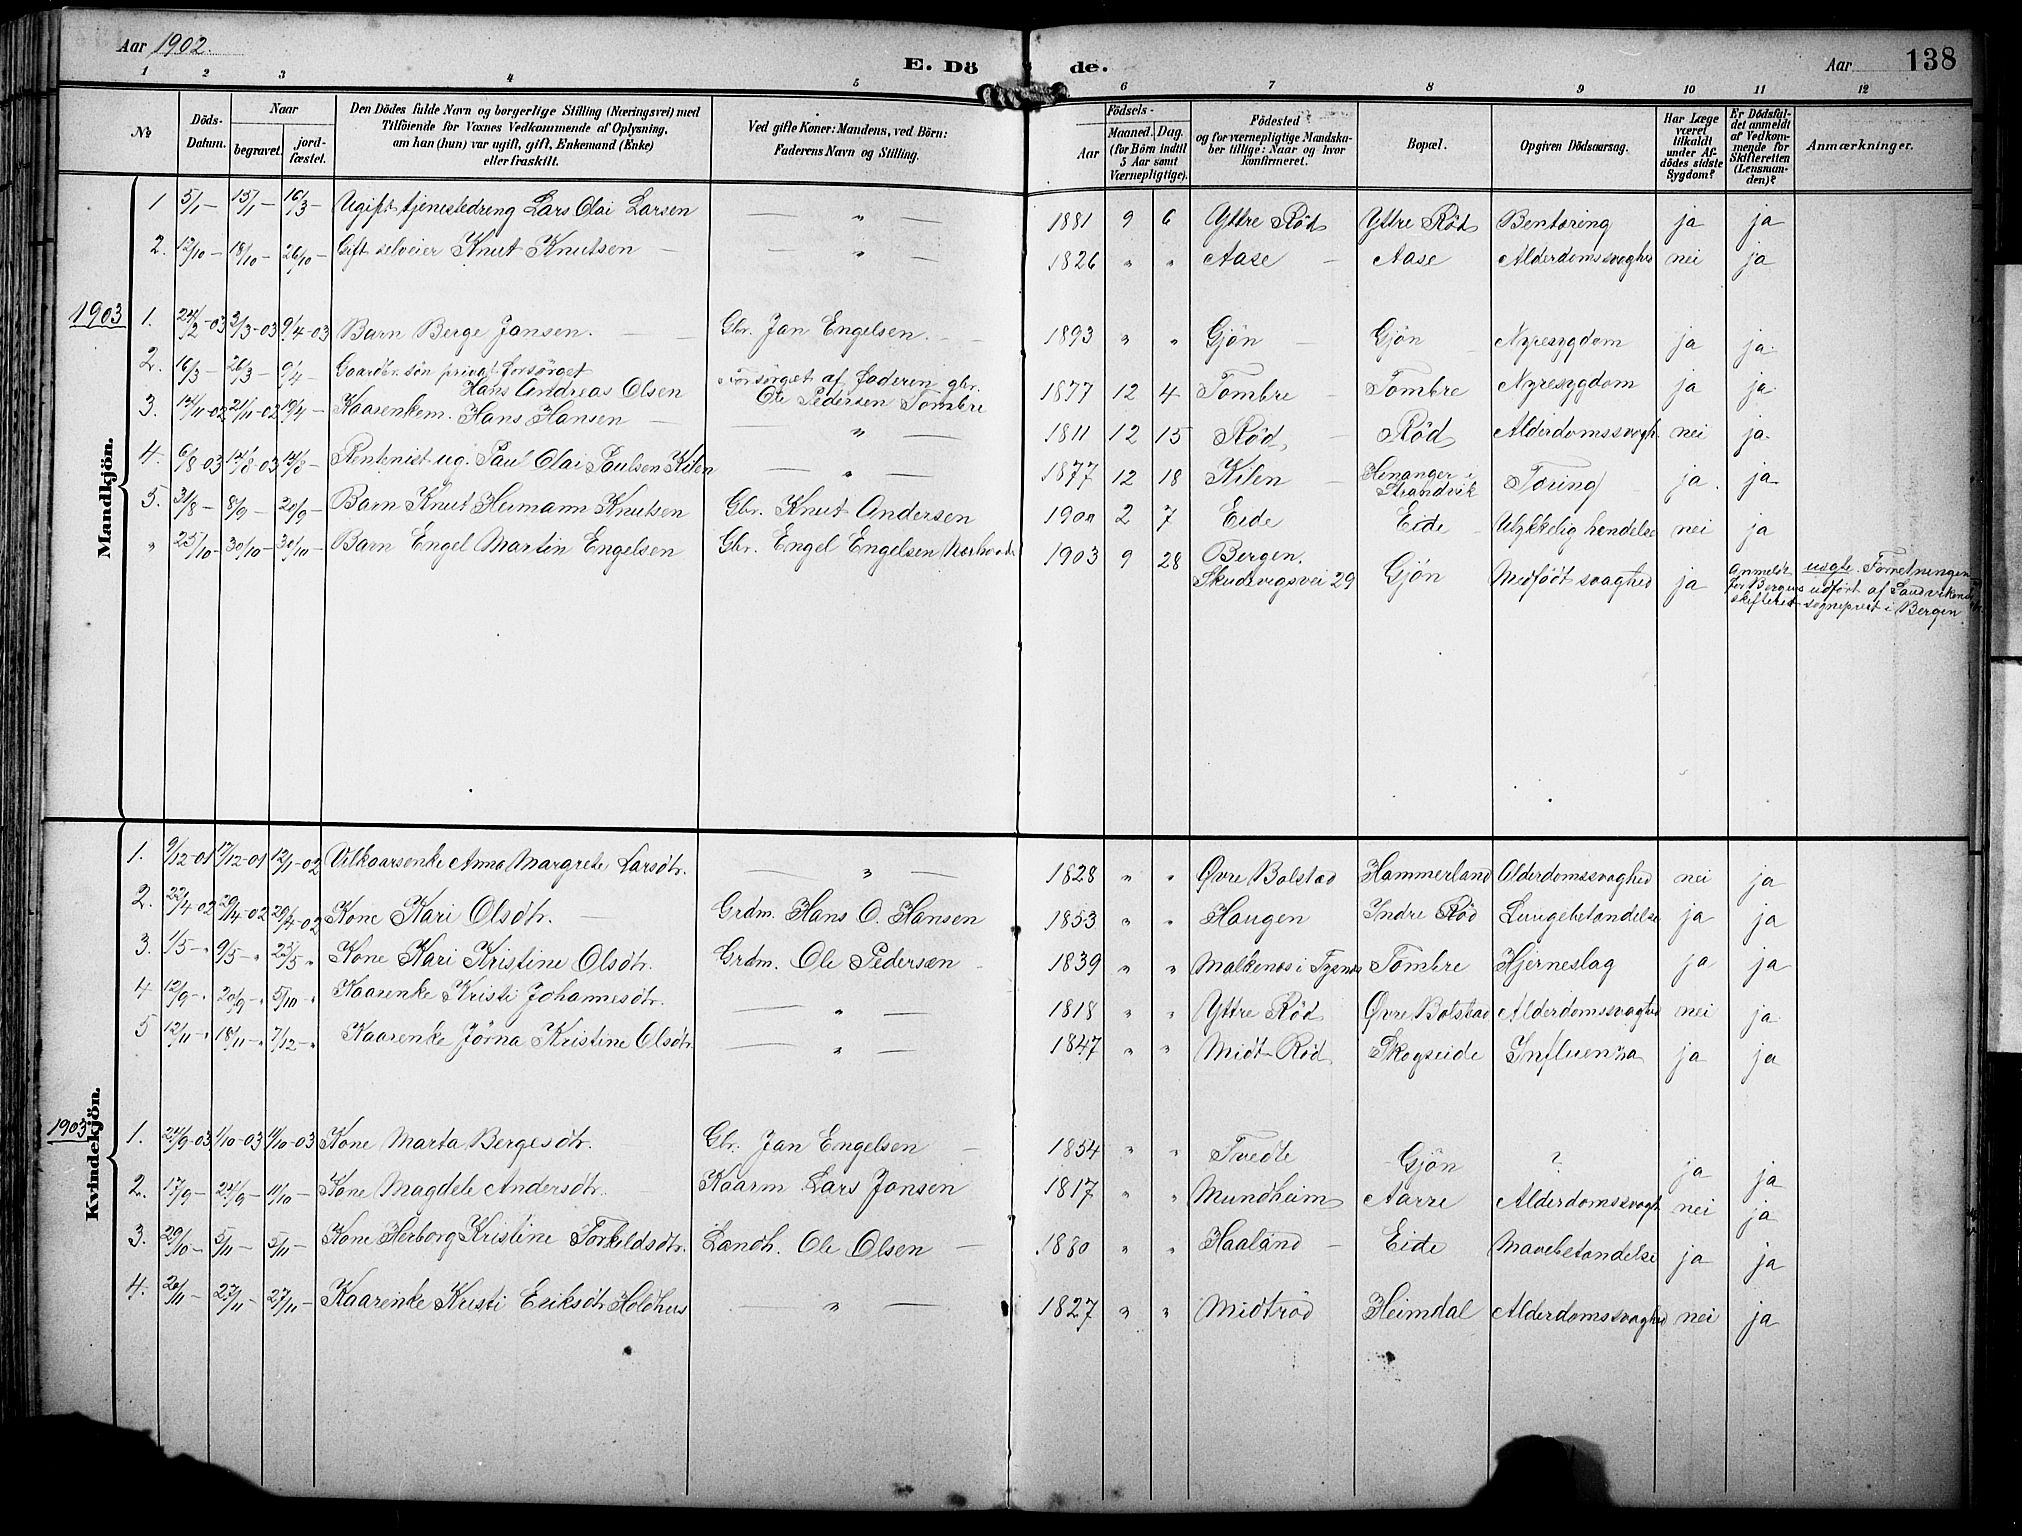 Aar 1902.
E. Dö de.
Aar 138
1 2 3 4 5 6 7 8 9 10 11 12
No
Döds-Datum.
Naar
begravet.
jord-fæstet.
Den Dödes fulde Navn og borgerlige Stilling (Næringsvei) med
Tilföiende for Voxnes Vedkommende af Oplysning,
om han (hun) var ugift, gift, Enkemand (Enke)
eller fraskilt.
Ved gifte Koner: Mandens, ved Börn:
Faderens Navn og Stilling.
Födsels-
Aar
Maaned. Dag.
(for Börn indtil
5 Aar samt
Værnepligtige).
Födested
og for værnepligtige Mandska-
ber tillige: Naar og hvor
konfirmeret.
Bopæl.
Opgiven Dödsaarsag.
Har Læge
været
tilkaldt
under Af-
dödes sidste
Sygdom?
Er Dödsfal-
det anmeldt
af Vedkom-
mende for
Skifteretten
(Lensman-
den)?
Anmærkninger.
Mandkjön.
1 5/1 – 15/1 – 16/3 – Ugift tjenestedreng Lars Olai Larsen — " — 1881 9 6 Yttre Röd Yttre Röd Bentæring ja ja
2. 12/10 – 18/10 – 26/10 – Gift selveier Knut Knutsen — " — 1826 " " Aase – Aase Alderdomssvaghed nei ja
1903
1. 24/2-03 3/3-03 9/4-03 Barn Berge Jansen. — Gbr. Jan Engelsen. 1893 " " Gjön – Gjön Nyresygdom ja ja.
2. 16/3 – 26/3 – 9/4 – Gaardbr. sön privat forsörget
Hans Andreas Olsen Forsörget af faderen gbr.
Ole Pedersen Tombre 1877 12 4 Tombre – Tombre Nyresygdom ja ja
3. 14/11-02 21/11-02 19/4 – Kaasenkem. Hans Hansen — " — 1811 12 15 Röd, – Röd Alderdomssvagh nei ja.
4. 6/8-03 12/8-03 12/8 – Rentenist ug. Paul Olai Paulsen Kilen — " — 1877 12 18 Kilen – Henanger i
Strandvik Tæring ja. ja
5. 31/8 – 8/9 – 20/9 – Barn Knut Hermann Knutsen Gbr. Knut Andersen 2 7 Eide Eide Ulykkelig hendelse nei ja
" 25/10 – 30/10 – 30/10 – Barn Engel Martin Engelsen Gbr. Engel Engelsen 1903 9 28 Bergen.
Skudevigsvei 29 Gjön Medfödt svaghed ja Anmeldt
for Bergens
skifteret Forretningen
udfört af Sandvikens
sogneprest i Bergen.
Kvindekjön.
1. 9/12-01 17/12-01 12/1-02 Vilkaarsenke Anna Margrete Larsdtr. — " — 1828 " " Övre Bolstad Hammerland Alderdomssvaghed nei ja
2. 22/4-02 29/4-02 29/4-02 Kone Kari Olsdtr. — Grdm. Hans O. Hansen 1853 " " Haugen Indre Röd Lungebetændelse ja ja
3. 1/5 – " 9/5 – " 25/5 " Kone Kari Kristine Olsdtr. Grdm. Ole Pedersen – 1839 " " Malkenes i Tysnes Tombre Hjerneslag ja ja
4 12/9 – " 20/9 – " 5/10 – " Kaarenke Kristi Johannesdtr. — " — 1818 " " Yttre Röd Övre Bolstad Alderdomssvaghed nei ja
5 12/11 – " 18/11 – " 7/12 – " Kaarenke Jörna Kristine Olsdtr — " — 1847 " " Midt-Röd Skogseide Influenza ja ja
1903
1. 24/9-03 1/10-03 11/10-03 Kone Marta Bergesdtr. Gbr. Jan Engelsen – 1854 " " Tvedte Gjön ? ja ja
2. 17/9 – 24/9 – 11/10 – Kone Magdele Andersdtr. Kaarm. Lars Jansen 1817 " " Mundheim Aarre Alderdomssvagh nei ja
3. 29/10 – 5/11 – 5/11 – Kone Herborg Kristine Torkildsdtr. Landh. Ole Olsen – 1880 " " Haaland – Eide Mavebetændelse ja ja
4. 20/11 – 27/11 – 27/11 – Kaarenke Kristi Eriksdtr Holdhus — " — 1827 " " Midtröd Heimdal Alderdomssvaghed nei ja